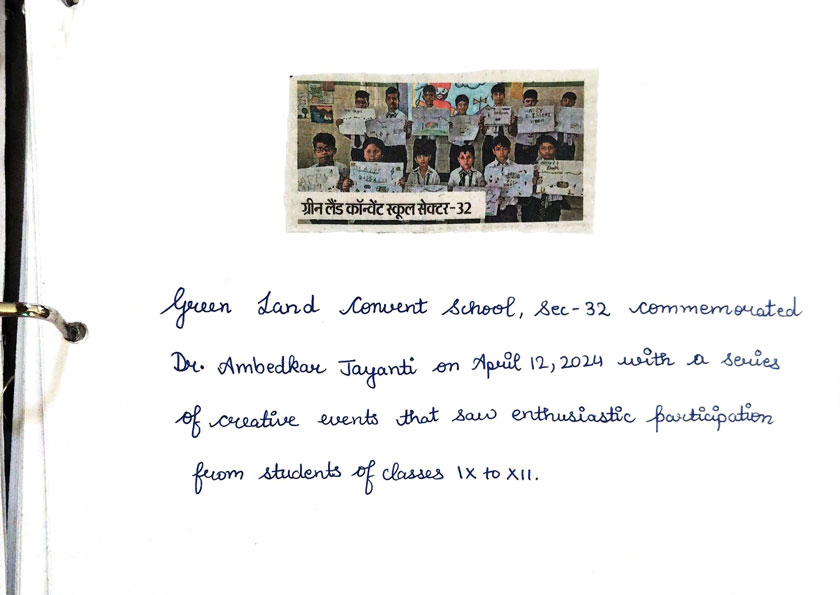 ग्रीन लैंड कॉन्वेंट स्कूल सेक्टर-32
Green Land Convent School, Sec-32 commemorated
Dr. Ambedkar Jayanti on April 12, 2024 with a series
of creative events that saw enthusiastic participation
from students of classes IX to XII.